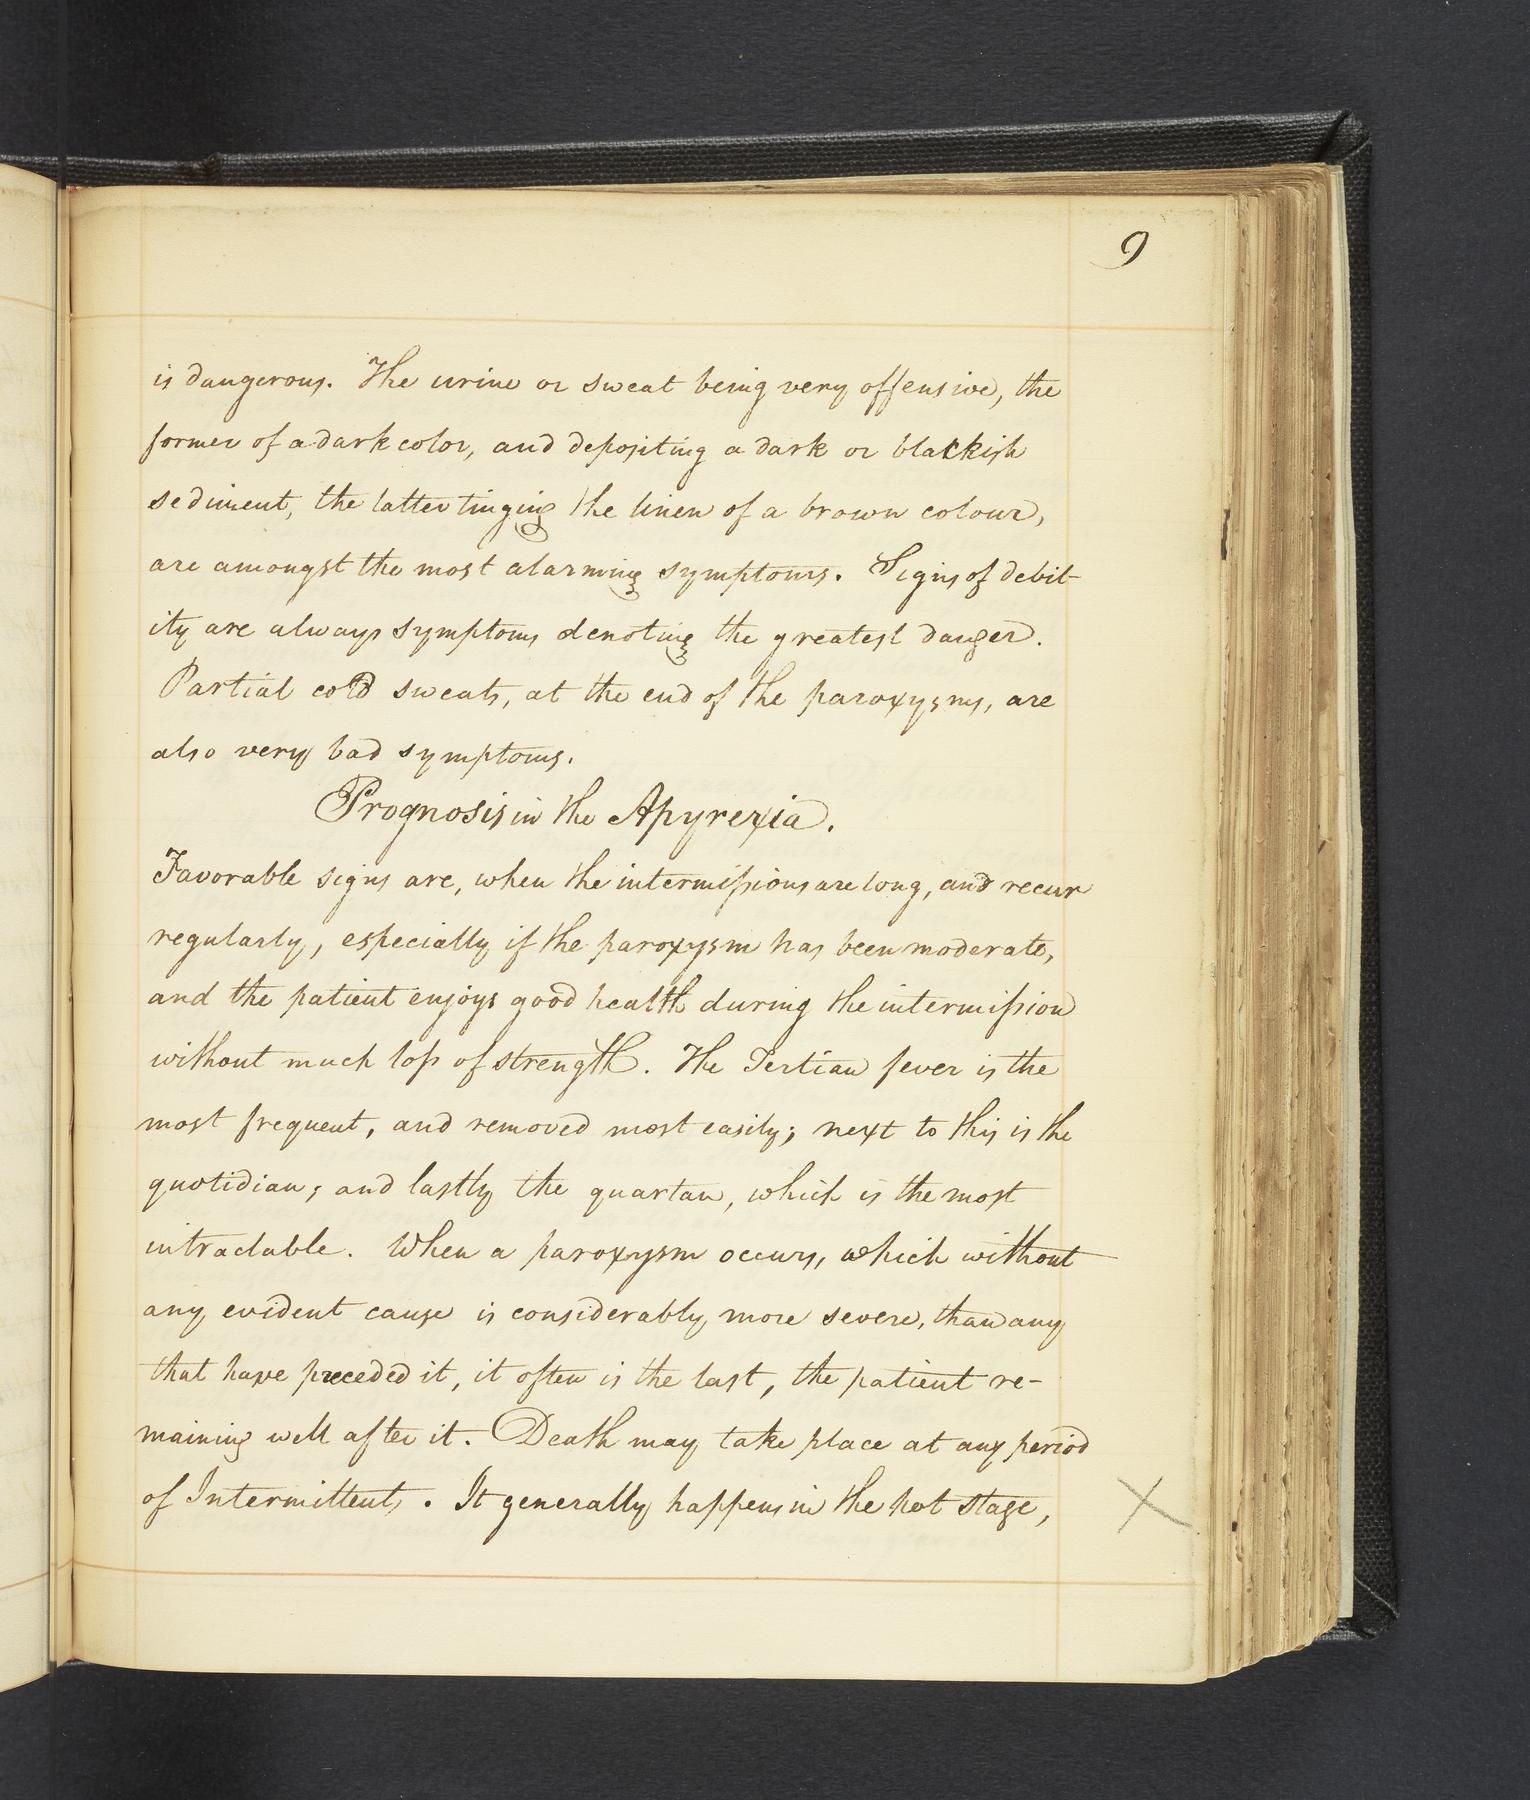 9
is dangerous. The urine or sweat being very offensive, the
former of a dark color, and depositing a dark or blackish
sediment, the latter tinging the linen of a brown colour,
are amongst the most alarming symptoms. Signs of debil-
ity are always symptoms denoting the greatest danger.
Partial cold sweats, at the end of the paroxysms, are
also very bad symptoms.
Prognosis in the Apyrexia.
Favorable signs are, when the intermissions are long, and recur
regularly, especially if the paroxysm has been moderate,
and the patient enjoys good health during the intermission
without much loss of strength. The Tertian fever is the
most frequent, and removed most easily; next to this is the
quotidian; and lastly the quartan, which is the most
intractable. When a paroxysm occurs, which without
any evident cause is considerably more severe, than any
that have preceded it, it often is the last, the patient re-
maining well after it. Death may take place at any period
of Intermittents. It generally happens in the hot stage,
X